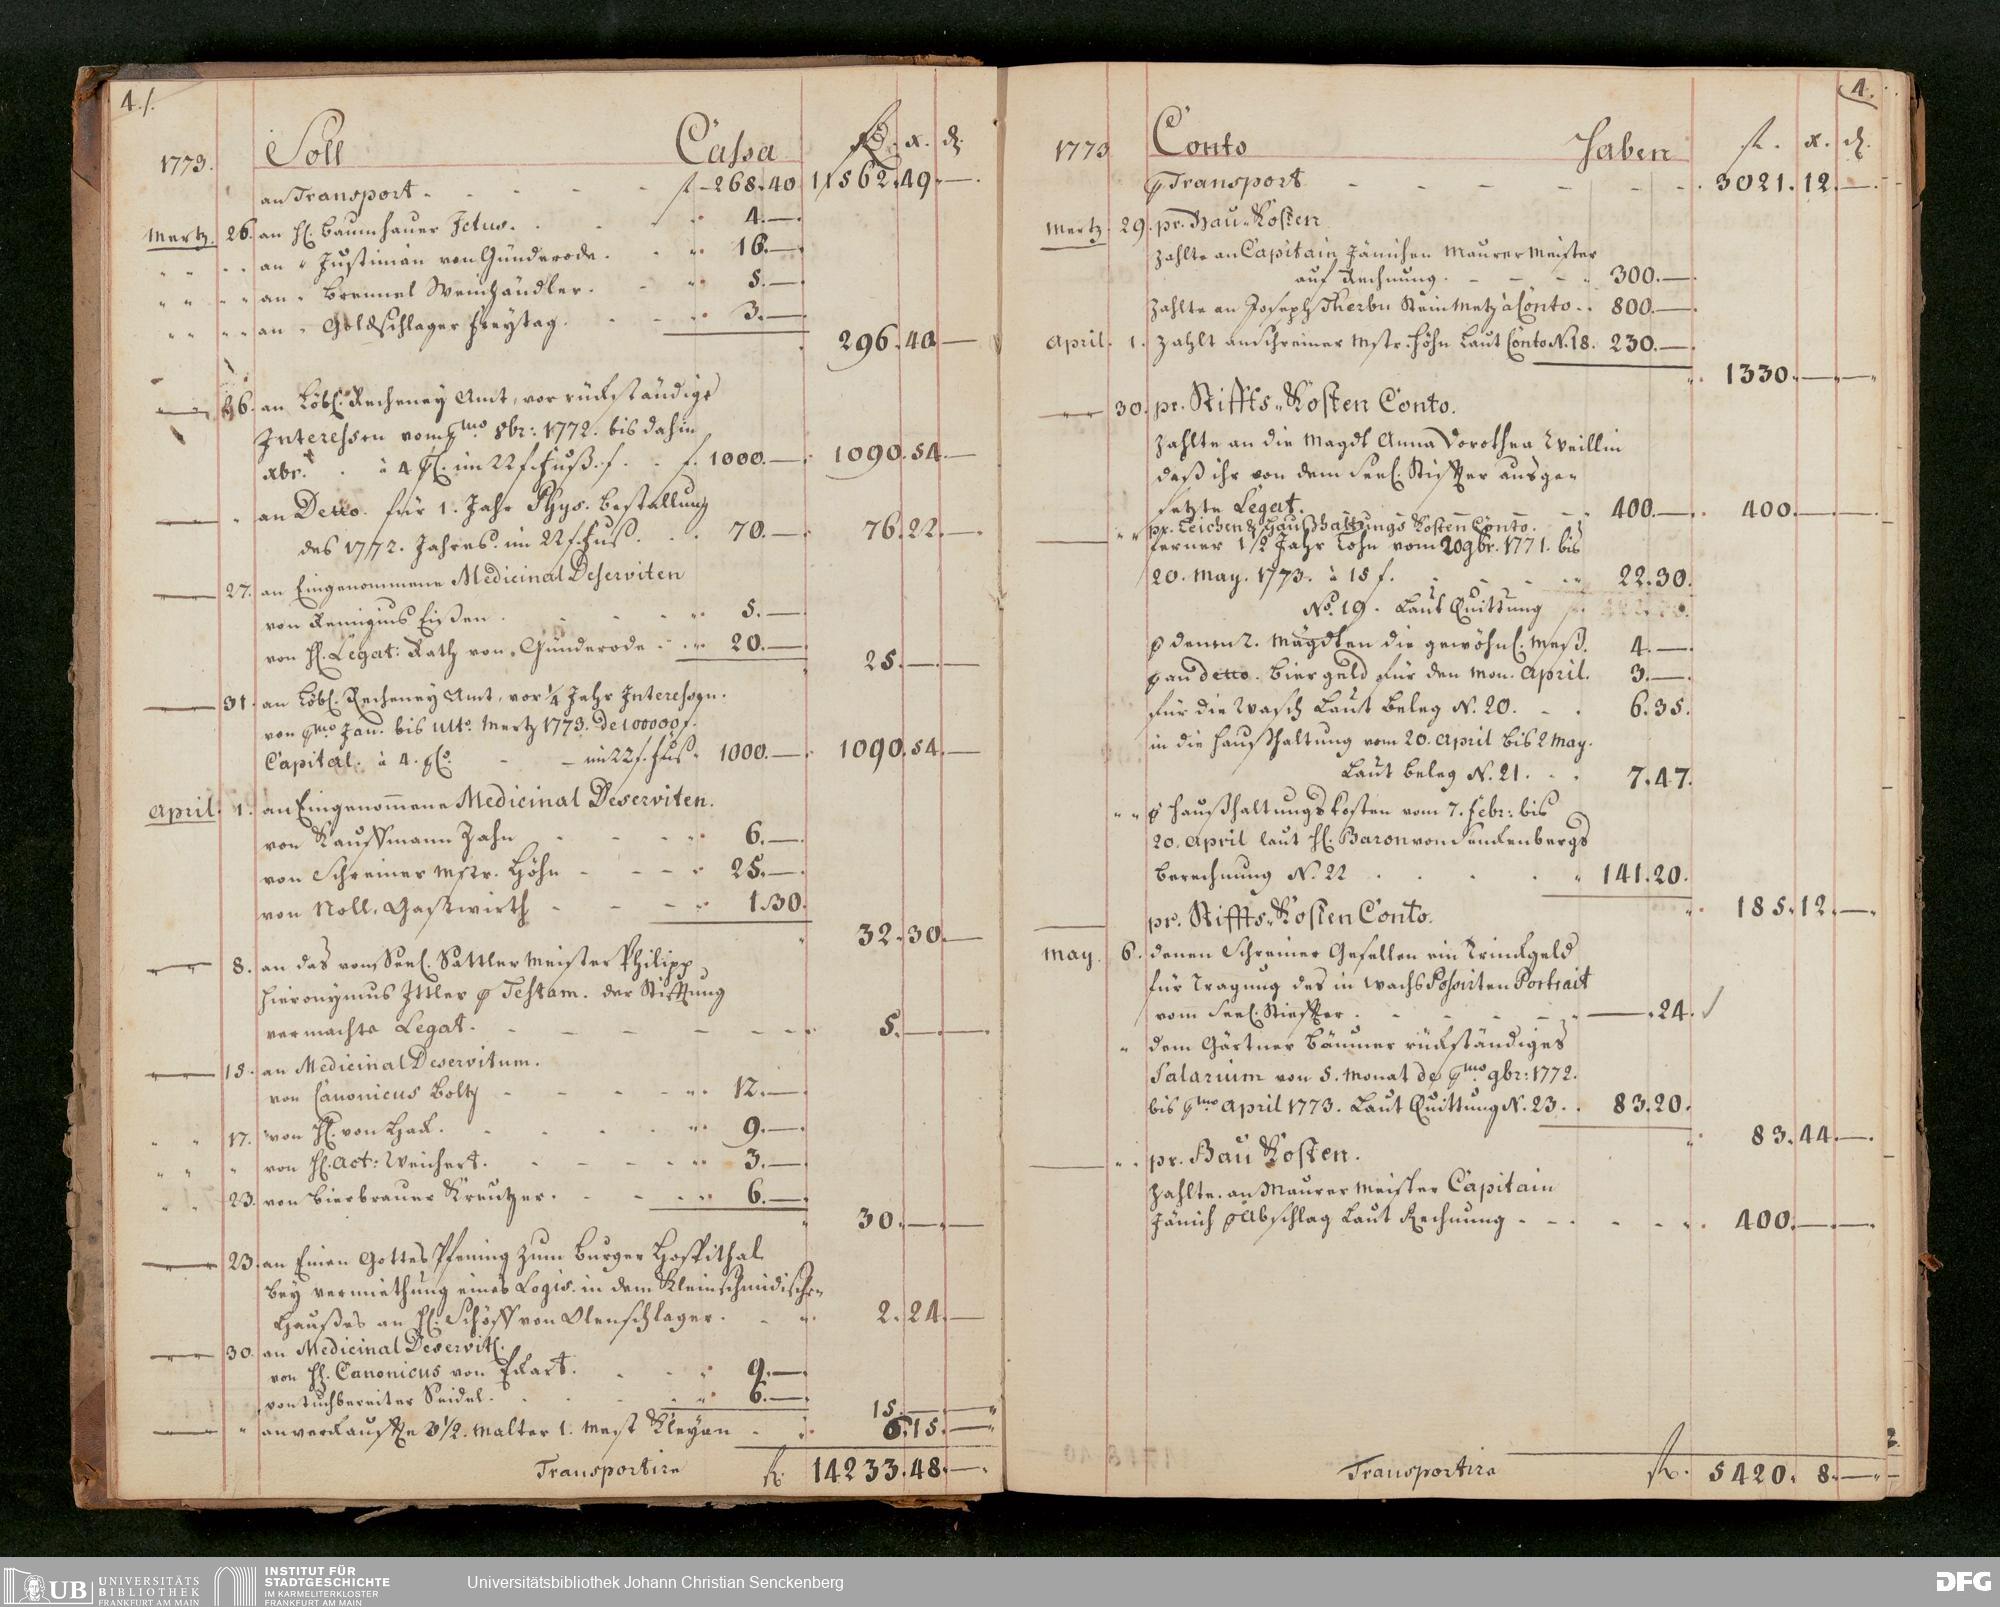 4./.
1773. Soll Cassa fl. x. d.
an Transport - - - - f - 268.40 11562.49.—.
Mertz. 26. an H. Baumhauer Jctus. 4.—.
" " " " an " Justinian von Günderode. 16.—.
" " " " an " Brennel Weinhändler. 5.—.
" " " " an " Goldschlager Freytag. 3.—.
296.40.—
26. an Löbl. Recheney Amt, vor rückständige
Interessen vom 1mo 8br: 1772. bis dahin
xbr. à 4 pC. im 22 f. Fuß. f. f. 1000.—. 1090.54.—
" an Detto. für 1. Jahr Phys. Bestallung
des 1772. Jahres. im 22 f. Fuß. 70.—. 76.22.—.
27. an Eingenommene Medicinal Deserviten
von Remigius Eißen. 5.—.
von H. Legat: Rath von Günderode 20.—.
25.—.—
31. an Löbl. Recheney Amt, vor 1/4 Jahr Interessen.
von 1mo Jan. bis ulto. Mertz 1773. De 100000 f.
Capital. à 4. pCo. - - im 22 f. Fuß 1000.—. 1090.54.—
April. 1. an Eingenommene Medicinal Deserviten.
von Kauffmann Zahn 6.—.
von Schreiner Mstr. Höhn 25.—.
von Noll, Gastwirth 1.30.
32.30.—
8. an das vom Seel. Sattler Meister Philipp
Hieronymus Ittler p Testam. der Stifftung
vermachte Legat. 5.—.—.
15. an Medicinal Deservitum.
von Canonicus Boltz 12.—.
" " 17. von H. von Hack. 9.—.
" " " von H. Act: Weichert. 3.—.
" " 23. von Bierbrauer Kreutzer. 6.—.
30.—.—
23. an Einen Gottes Pfening zum Burger Hospithal
bey vermiethung eines Logis. in dem Kleinschmidischen
Haußes an H. Schöff von Olenschlager. 2.24.—
30. an Medicinal Deservit.
von H. Canonicus von Eckart. 9.—.
von tuchbereiter Seidel. 6.—.
15.—.—"
" an verkauffte 3 1/2. Malter 1. Mest Kleyen 6.15.—"
Transportire fl. 14233.48.—.
4.
1773 Conto Haben fl. x. d.
p Transport - - - - - 3021.12.—.
Mertz. 29. pr. Bau-Kosten
zahlte an Capitain Jänichen Maurer Meister
auf Rechnung. 300.—.
zahlte an Joseph Therbu Steinmetz à Conto 800.—.
April. 1. zahlt an Schreiner Mstr. Höhn Laut Conto N. 18. 230.—.
1330.—.—.
" 30. pr. Stiffts-Kosten Conto.
zahlte an die Magdt Anna Dorothea Weillin
daß ihr von dem Seel. Stiffter ausge-
setzte Legat. 400.—. 400.—.—.
" " pr. Leichen & Haußhaltungs Kosten Conto.
ferner 1 1/2 Jahr Lohn vom 20 9br. 1771. bis
20. May. 1773. à 15 f. 22.30.
No. 19. Laut Quittung
p denen 2. Mägdten die gewöhnl. Meß. 4.—.
p an detto. Biergeld für den Mon. April. 3.—.
für die Wasch Laut Beleg N. 20. 6.35.
in die Haußhaltung vom 20. April bis 2 May.
Laut Beleg N. 21. 7.47.
" " p Haußhaltungskosten vom 7. Febr: bis
20. April laut H. Baron von Senckenbergs
Berechnung N. 22 141.20.
185.12.—.
pr. Stiffts-Kosten Conto.
May. 6. denen Schreiner Gesellen ein Trinckgeld
für Tragung des in Wachs Possirten Portrait
vom Seel. Stieffter. —.24. ✓
" dem Gärtner Bäumer rückständiges
Salarium von 5. Monat de 1mo 9br: 1772.
bis 1mo April 1773. Laut Quittung N. 23. 83.20.
83.44.—.
" " pr. Bau Kosten.
zahlte an Maurer Meister Capitain
Jänich p Abschlag Laut Rechnung 400.—.—.
Transportire fl. 5420. 8.—.
UB UNIVERSITÄTS
BIBLIOTHEK
FRANKFURT AM MAIN
INSTITUT FÜR
STADTGESCHICHTE
IM KARMELITERKLOSTER
FRANKFURT AM MAIN
Universitätsbibliothek Johann Christian Senckenberg
DFG